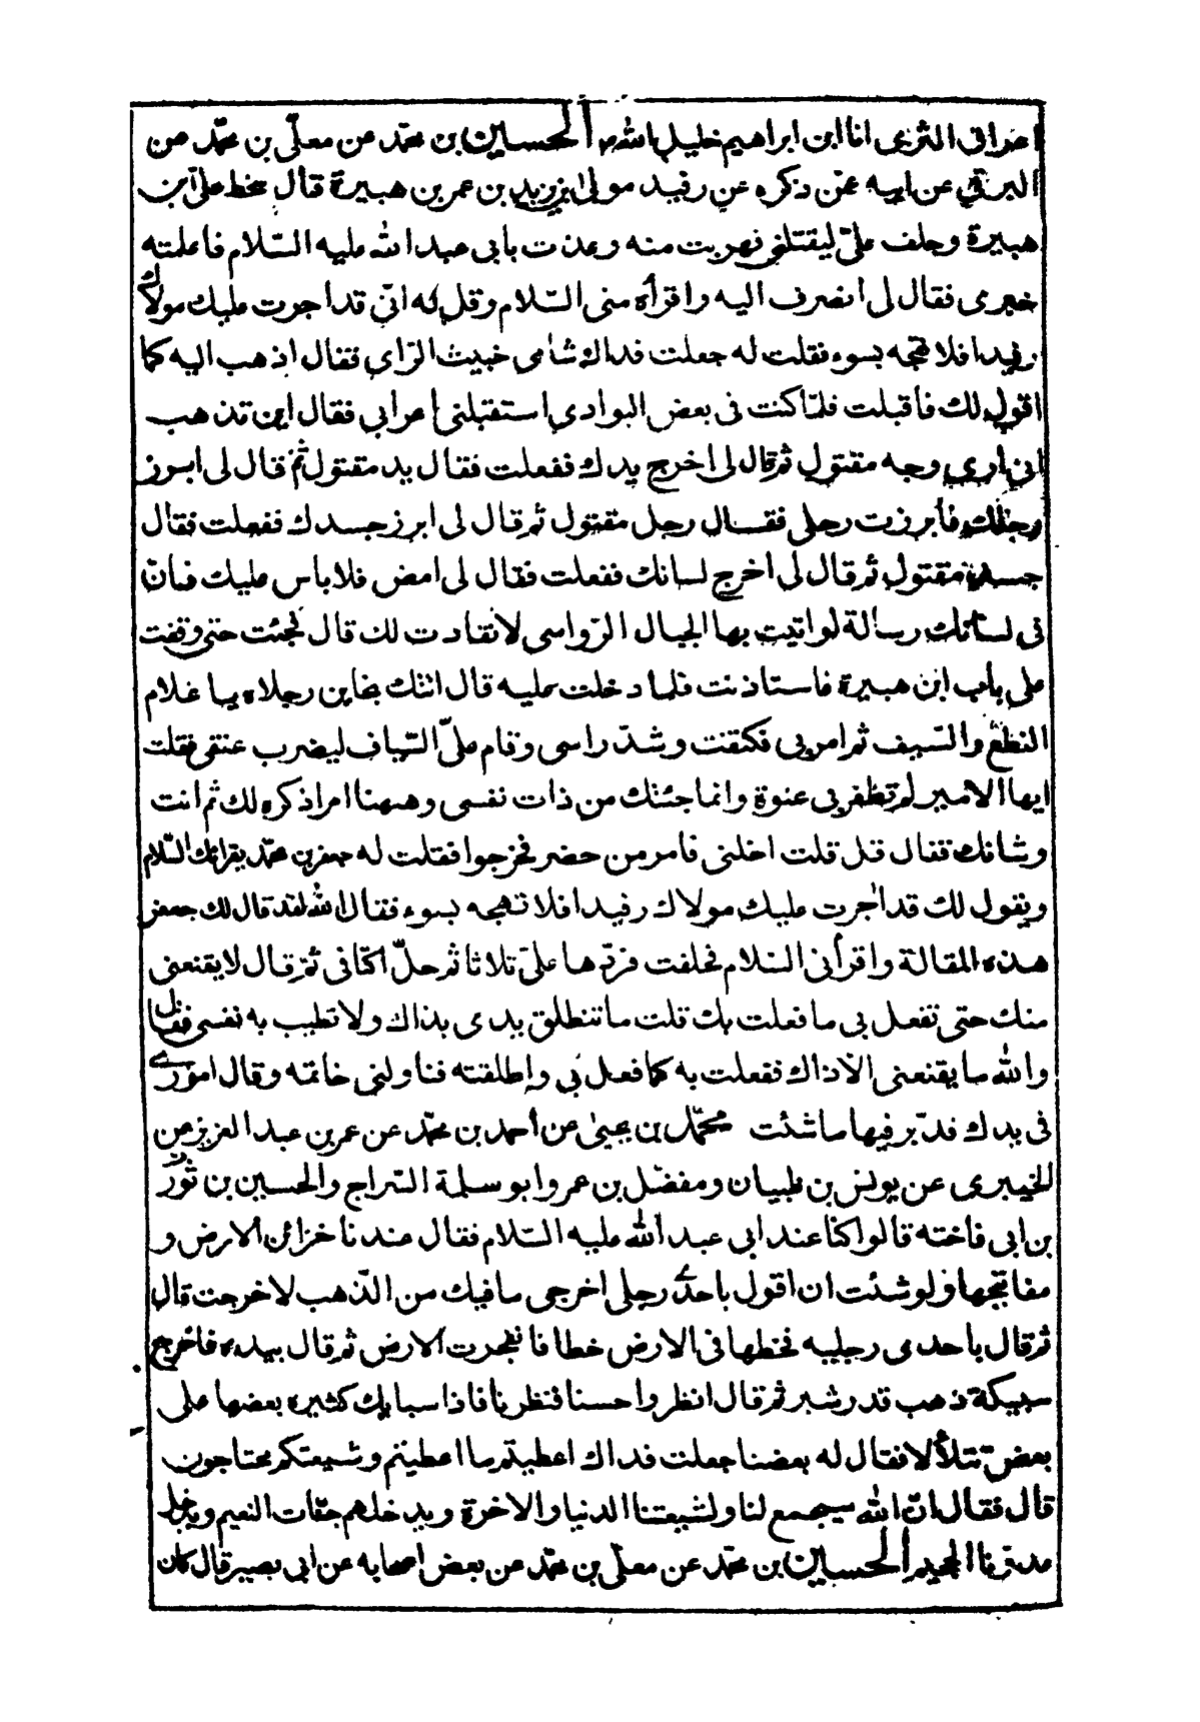 اعراق الثرى انا ابن ابراهيم خليل الله الحسين بن محمّد عن معلّى بن محمّد عن
البرقي عن ابيه عمّن ذكره عن رفيد مولى يزيد بن عمر بن هبيرة قال سخط علىّ ابن
هبيرة وحلف علىّ ليقتلنى فهربت منه وعذت بابى عبدالله عليه السّلام فاعلمته
خبرى فقال لى انصرف اليه واقرأه منى السّلام وقل له انّى قد اجرت عليك مولاك
رفيدا فلا تهجه بسوء فقلت له جعلت فداك شامى خبيث الرّاى فقال اذهب اليه كما
اقول لك فاقبلت فلمّا كنت فى بعض البوادى استقبلنى اعرابى فقال اين تذهب
انى ارى وجه مقتول ثم قال لى اخرج يدك ففعلت فقال يد مقتول ثم قال لى ابرز
رجلك فابرزت رجلى فقال رجل مقتول ثم قال لى ابرز جسدك ففعلت فقال
جسد مقتول ثم قال لى اخرج لسانك ففعلت فقال لى امض فلا باس عليك فانّ
فى لسانك رسالة لو اتيت بها الجبال الرّواسى لانقادت لك قال فجئت حتى وقفت
على باب ابن هبيرة فاستاذنت فلما دخلت عليه قال اتتك بخاين رجلاه يا غلام
النطع والسّيف ثم امر بى فكتفت وشدّ راسى وقام علىّ السّياف ليضرب عنقى فقلت
ايها الامير لم تظفر بى عنوة وانما جئتك من ذات نفسى وههنا امر اذكره لك ثم انت
وشانك فقال قل قلت اخلنى فامر من حضر فخرجوا فقلت له جعفر بن محمّد يقرائك السّلام
ويقول لك قد اجرت عليك مولاك رفيدا فلا تهجه بسوء فقال الله لقد قال لك جعفر
هذه المقالة واقرأنى السّلام فحلفت فردّها علىّ ثلاثا ثم حلّ اكتافى ثم قال لا يقنعنى
منك حتى تفعل بى ما فعلت بك قلت ما تنطلق يدى بذاك ولا تطيب به نفسى فقال
والله ما يقنعنى الّا ذاك ففعلت به كما فعل بى واطلقته فناولنى خاتمه وقال امورى
فى يدك فدبّر فيها ما شئت محمّد بن يحيى عن احمد بن محمّد عن عمر بن عبدالعزيز عن
الخيبرى عن يونس بن ظبيان ومفضّل بن عمر وابو سلمة السّراج والحسين بن ثور
بن ابى فاخته قالوا كنا عند ابى عبدالله عليه السّلام فقال عندنا خزائن الارض و
مفاتيحها ولو شئت ان اقول باحدى رجلى اخرجى ما فيك من الذّهب لاخرجت قال
ثم قال باحدى رجليه فخطها فى الارض خطا فانفجرت الارض ثم قال بيده فاخرج
سبيكة ذهب قدر شبر ثم قال انظروا حسنا فنظرنا فاذا سبايك كثيره بعضها على
بعض تتلألأ فقال له بعضنا جعلت فداك اعطيتم ما اعطيتم وشيعتكم محتاجون
قال فقال انّ الله سيجمع لنا ولشيعتنا الدنيا والاخرة ويدخلهم جنّات النعيم ويدخل
عدوّنا الجحيم الحسين بن محمّد عن معلّى بن محمّد عن بعض اصحابه عن ابى بصير قال كان